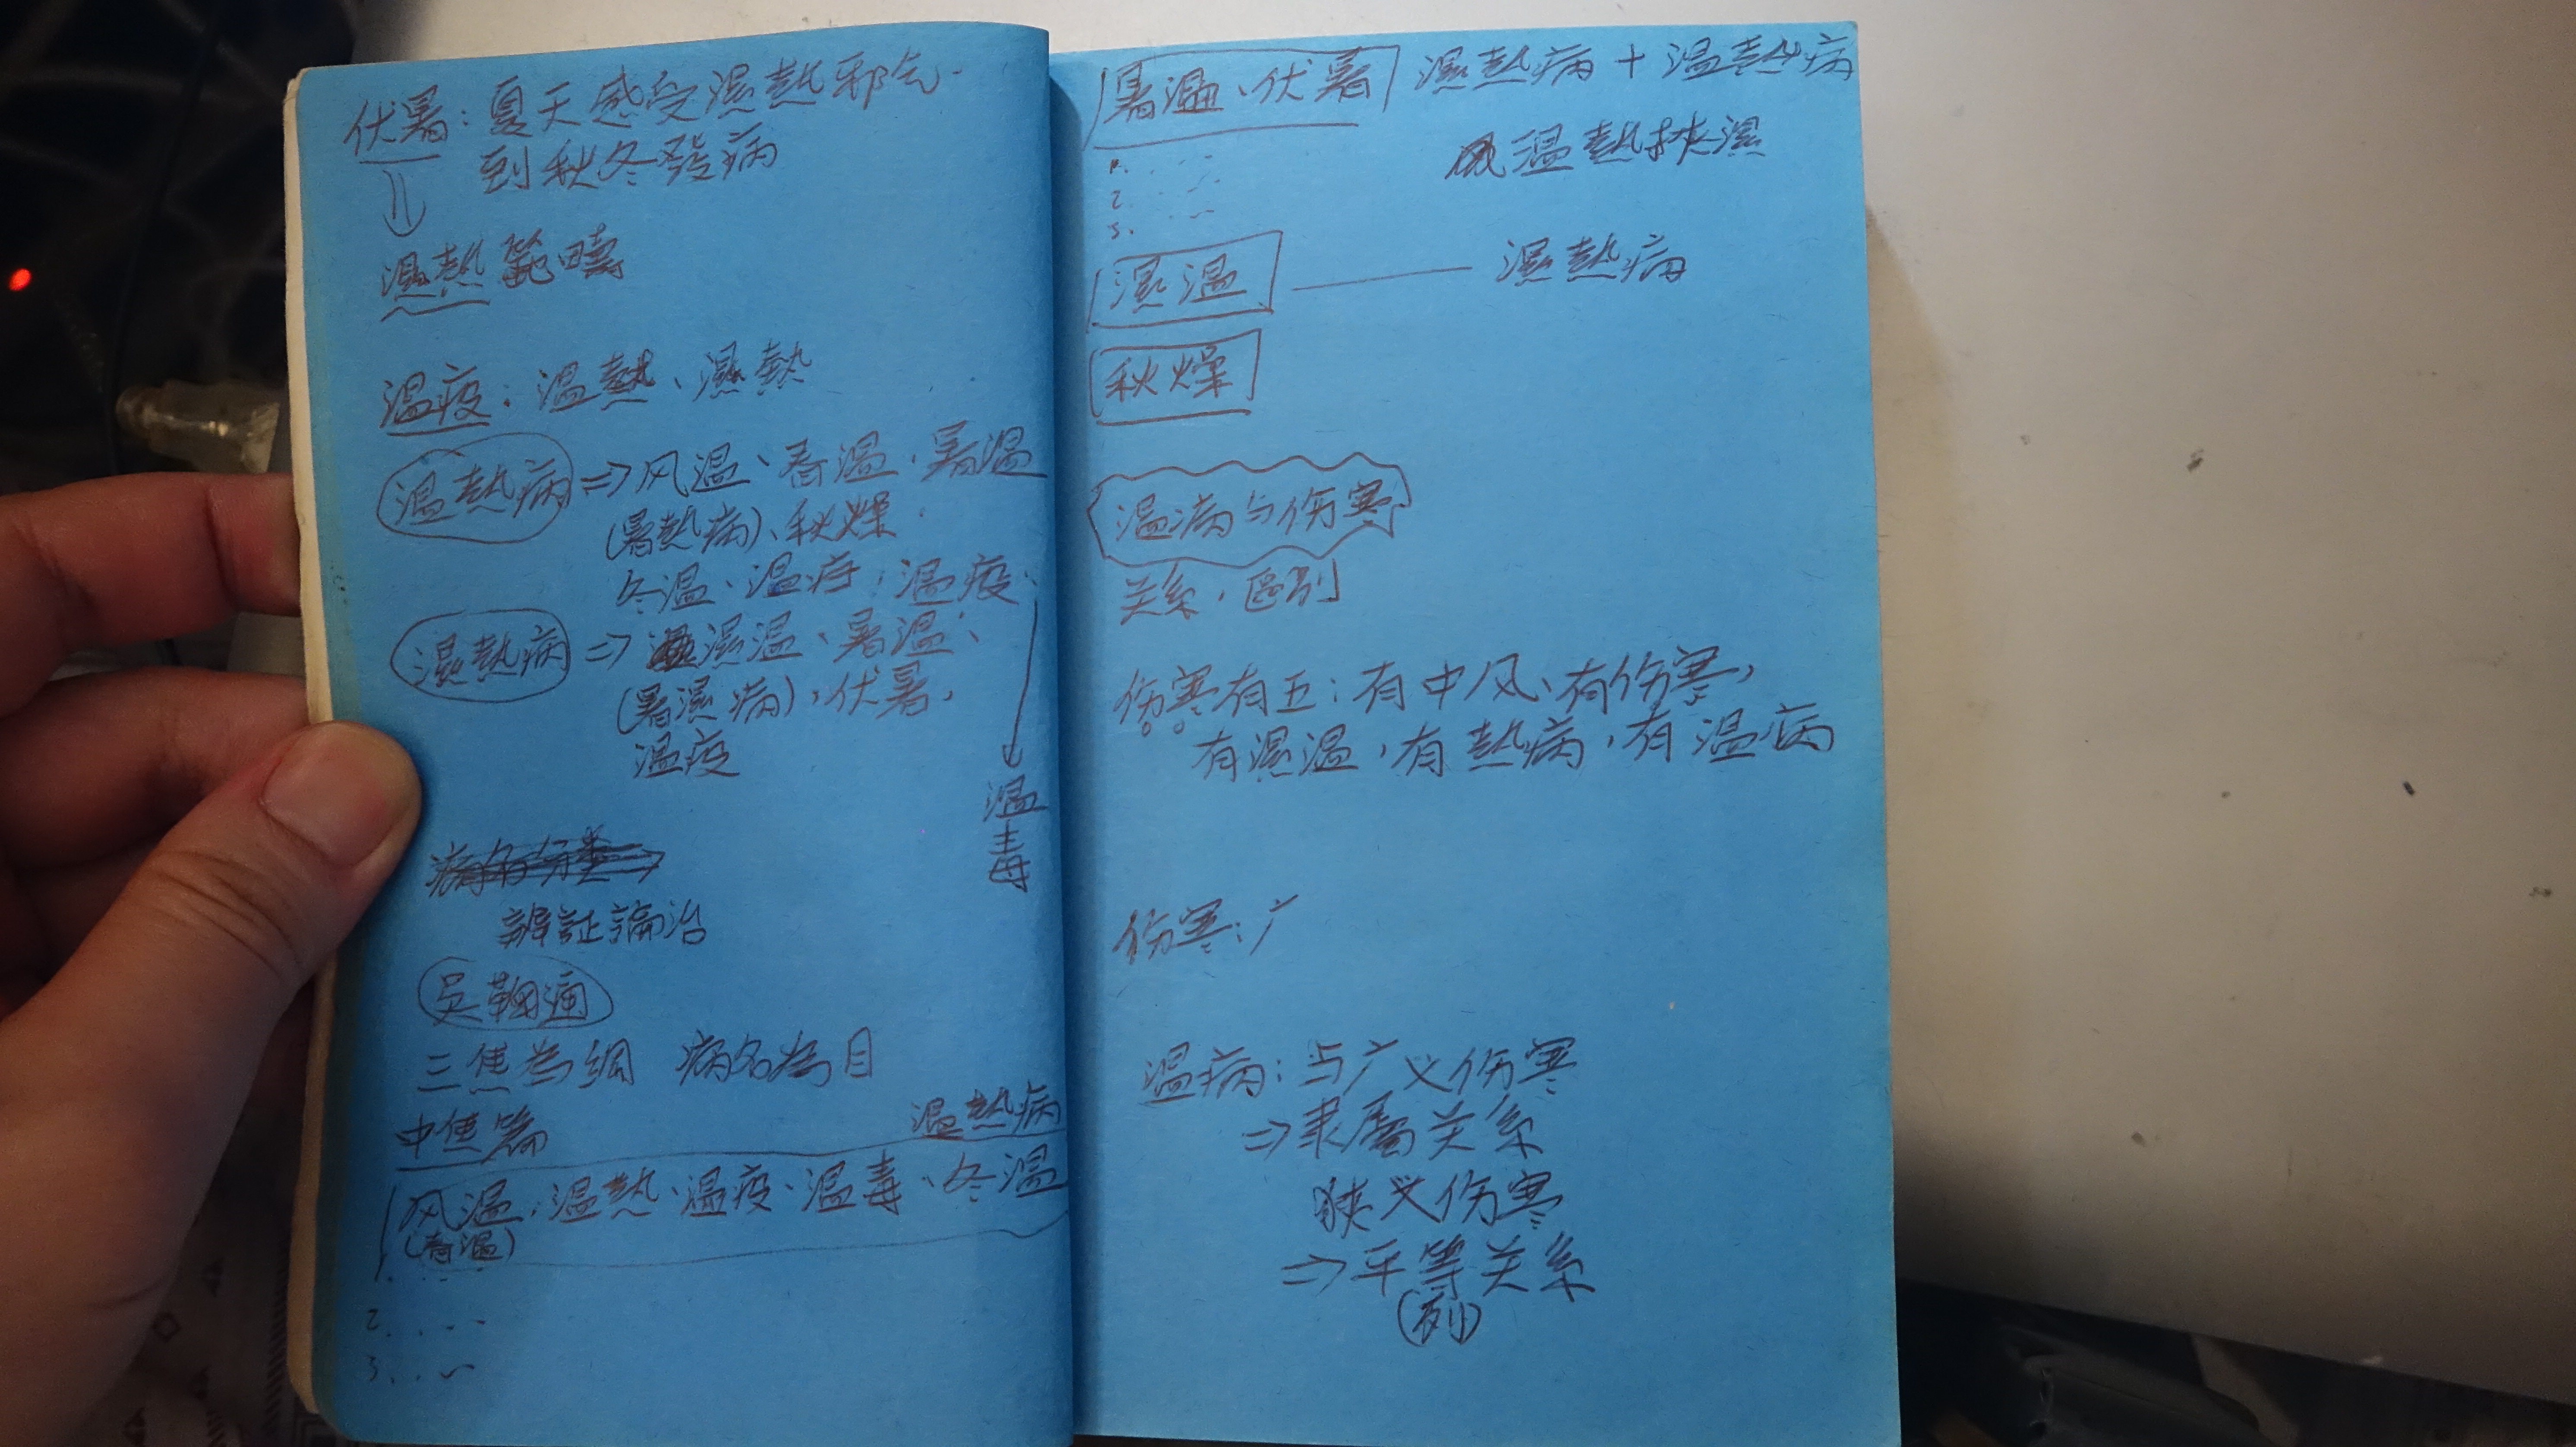 伏暑：夏天感受濕熱邪气.
到秋冬發病
濕熱範疇
温疫：温熱、濕熱
温熱病 ⇒ 风温、春温、暑温
(暑熱病)、秋燥.
冬温、温疟、温疫、
温毒
濕熱病 ⇒ 濕温、暑温、
(暑濕病)、伏暑、
温疫
病名分类
辨証論治
吳鞠通
三焦為纲 病名為目
中焦篇 温熱病
风温、温熱、温疫、温毒、冬温
(春温)
2. . . . .
3. . . .
暑温、伏暑 濕熱病 + 温熱病
温熱挾濕
1. . . .
2. . . .
3.
濕温 — 濕熱病
秋燥
温病与伤寒
关系、區别
伤寒有五：有中风、有伤寒,
有濕温,有熱病,有温病
伤寒：广
温病：与广义伤寒
⇒ 隶屬关系
狭义伤寒
⇒ 平等关系
(列)